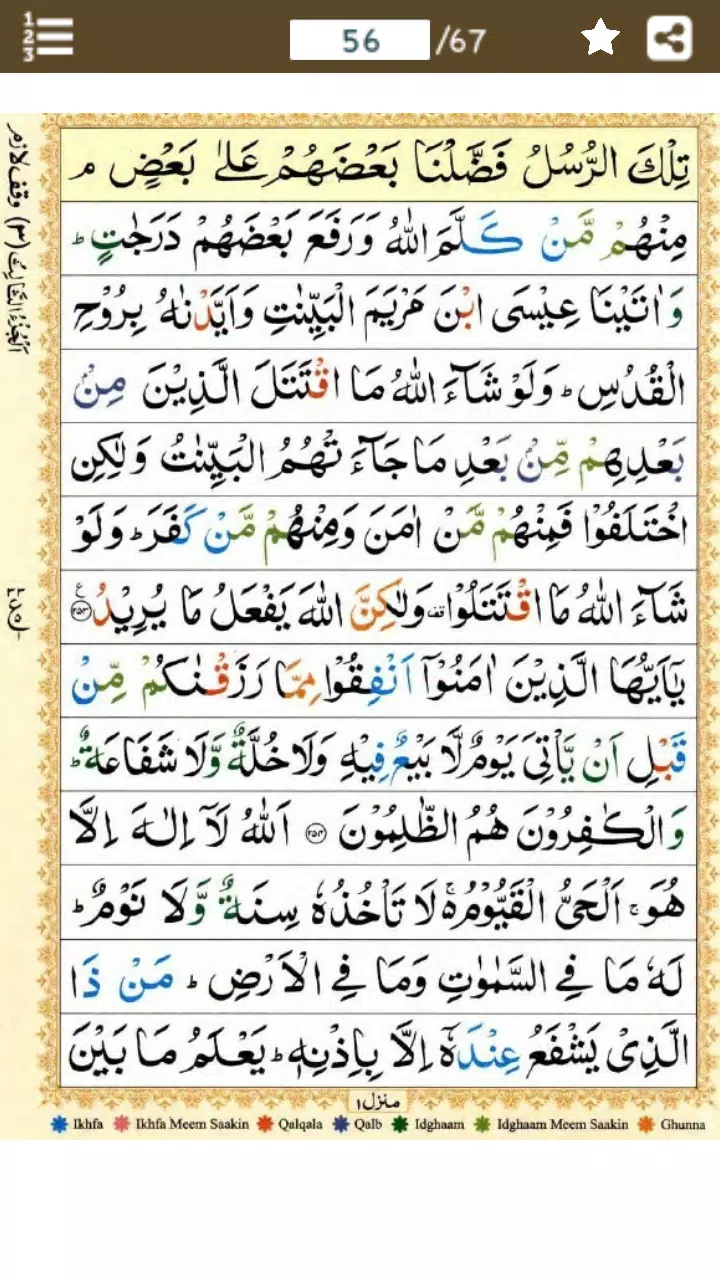 1
2
3
56 /67
تِلْكَ الرُّسُلُ فَضَّلْنَا بَعْضَهُمْ عَلٰى بَعْضٍ ۘ م
مِنْهُمْ مَّنْ كَلَّمَ اللّٰهُ وَرَفَعَ بَعْضَهُمْ دَرَجٰتٍ ؕ
وَاٰتَيْنَا عِيْسَى ابْنَ مَرْيَمَ الْبَيِّنٰتِ وَاَيَّدْنٰهُ بِرُوْحِ
الْقُدُسِ ؕ وَلَوْ شَآءَ اللّٰهُ مَا اقْتَتَلَ الَّذِيْنَ مِنْۢ
بَعْدِهِمْ مِّنْۢ بَعْدِ مَا جَآءَ تْهُمُ الْبَيِّنٰتُ وَلٰكِنِ
اخْتَلَفُوْا فَمِنْهُمْ مَّنْ اٰمَنَ وَمِنْهُمْ مَّنْ كَفَرَ ؕ وَلَوْ
شَآءَ اللّٰهُ مَا اقْتَتَلُوْا وَلٰكِنَّ اللّٰهَ يَفْعَلُ مَا يُرِيْدُ ﴿۲۵۳﴾ ع
يٰۤاَيُّهَا الَّذِيْنَ اٰمَنُوْۤا اَنْفِقُوْا مِمَّا رَزَقْنٰكُمْ مِّنْ
قَبْلِ اَنْ يَّاْتِىَ يَوْمٌ لَّا بَيْعٌ فِيْهِ وَلَا خُلَّةٌ وَّلَا شَفَاعَةٌ ؕ
وَالْكٰفِرُوْنَ هُمُ الظّٰلِمُوْنَ ﴿۲۵۴﴾ اَللّٰهُ لَاۤ اِلٰهَ اِلَّا
هُوَ ۚ اَلْحَىُّ الْقَيُّوْمُ ۚ۬ لَا تَاْخُذُهٗ سِنَةٌ وَّلَا نَوْمٌ ؕ
لَهٗ مَا فِى السَّمٰوٰتِ وَمَا فِى الْاَرْضِ ؕ مَنْ ذَا
الَّذِىْ يَشْفَعُ عِنْدَهٗۤ اِلَّا بِاِذْنِهٖ ؕ يَعْلَمُ مَا بَيْنَ
اَلْجُزْءُ الثَّالِثُ (۳) وقف لازم
منزل ۱
Ikhfa Ikhfa Meem Saakin Qalqala Qalb Idghaam Idghaam Meem Saakin Ghunna